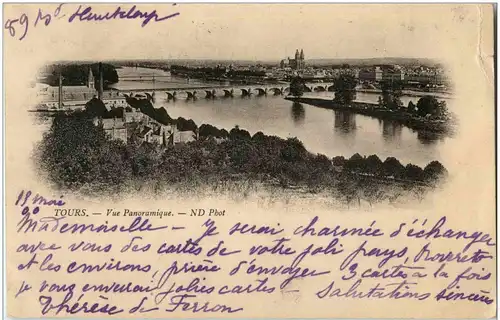 89 Bd Heurteloup
TOURS. — Vue Panoramique. — ND Phot
18 Mai
Mademoiselle - Je serai charmée d'échanger
avec vous des cartes de votre joli pays,
et les environs, prière d'envoyer 3 cartes à la fois
je vous enverrai jolies cartes - Salutations sincères
Thérèse de Ferron